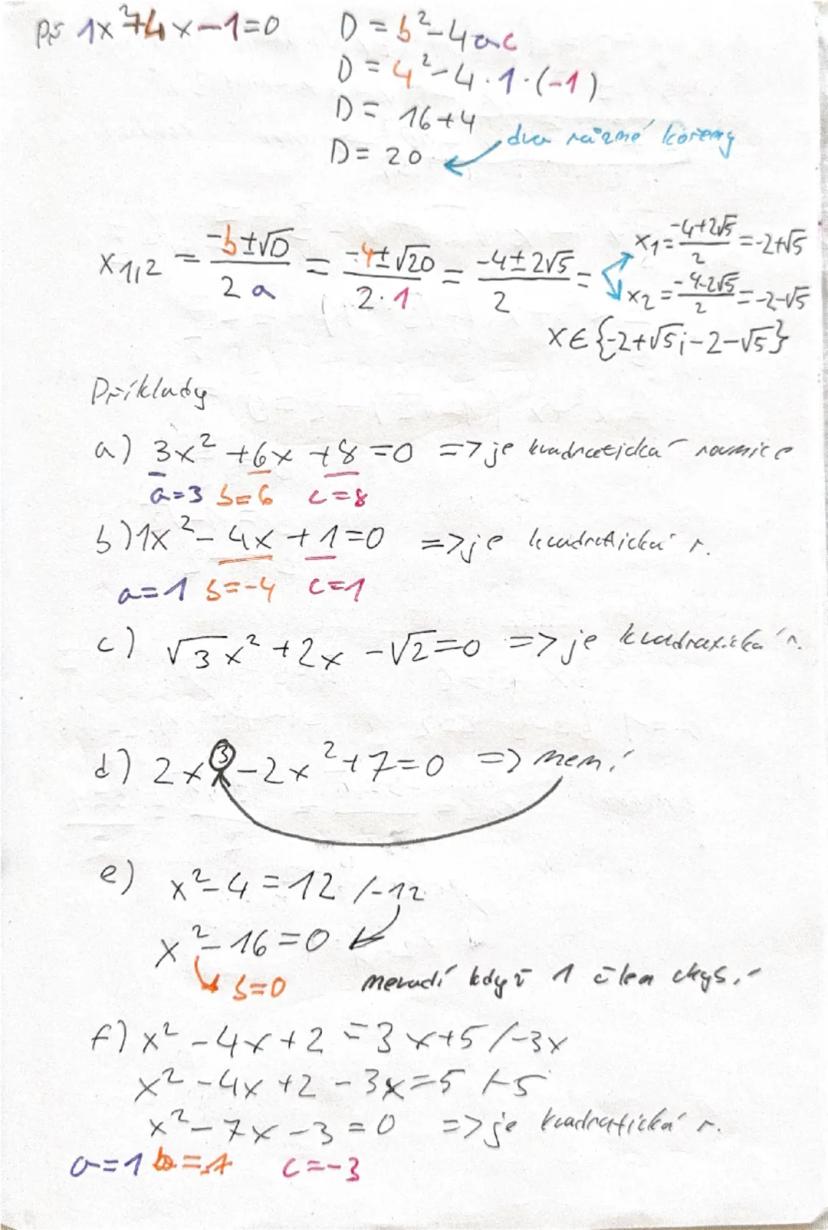 Př 1x²+4x-1=0
D = b²-4ac
D = 4²-4·1·(-1)
D = 16+4
D = 20
dva různé kořeny
x1,2 = (-b±√D)/(2a) = (-4±√20)/(2·1) = (-4±2√5)/2 =
x1 = (-4+2√5)/2 = -2+√5
x2 = (-4-2√5)/2 = -2-√5
x∈{-2+√5;-2-√5}
Příklady
a) 3x²+6x+8=0 => je kvadratická rovnice
a=3 b=6 c=8
b) 1x²-4x+1=0 => je kvadratická r.
a=1 b=-4 c=1
c) √3x²+2x-√2=0 => je kvadratická r.
d) 2x³-2x²+7=0 => není
e) x²-4=12 /-12
x²-16=0
b=0 nevadí když 1 člen chybí
f) x²-4x+2=3x+5 /-3x
x²-4x+2-3x=5 /-5
x²-7x-3=0 => je kvadratická r.
a=1 c=-3